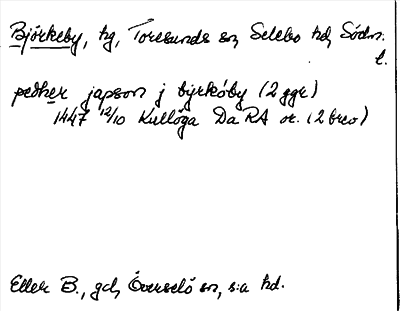 Björkeby, hg, Toresunds sn, Selebo hd, Södm.
l.
pedher japson j byrkôby (2 ggr)
1447 12/10 Kullöga Da RA or. (2 brev)
Eller B., gd, Överselö sn, s:a hd.